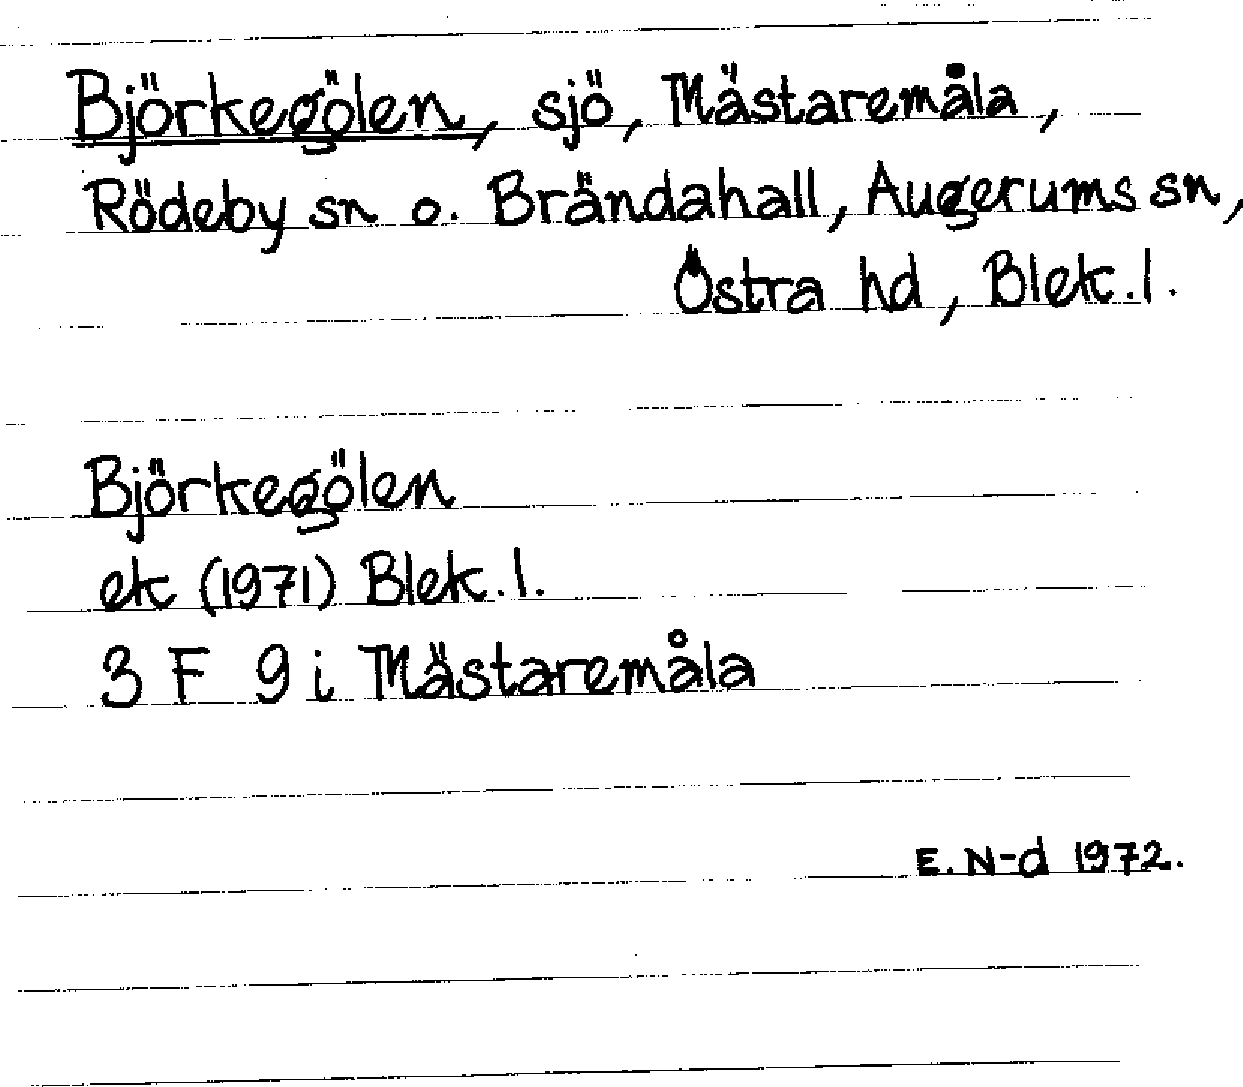 Björkegölen, sjö, Mästaremåla,
Rödeby sn o. Brändahall, Augerums sn,
Östra hd, Blek. l.
Björkegölen
ek (1971) Blek. l.
3 F 9 i Mästaremåla
E. N-d 1972.